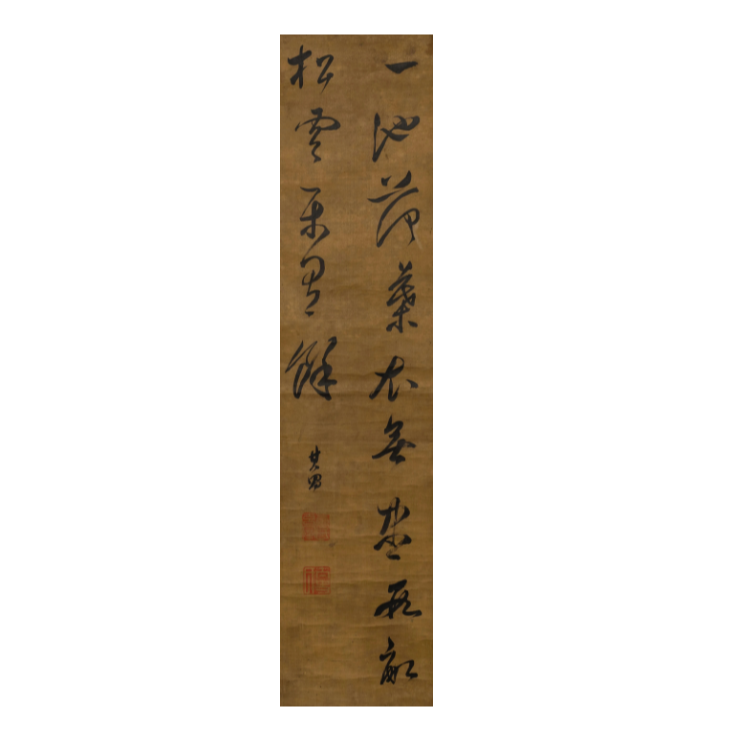 一池荷葉衣無盡數畝
松雲食有餘
其昌